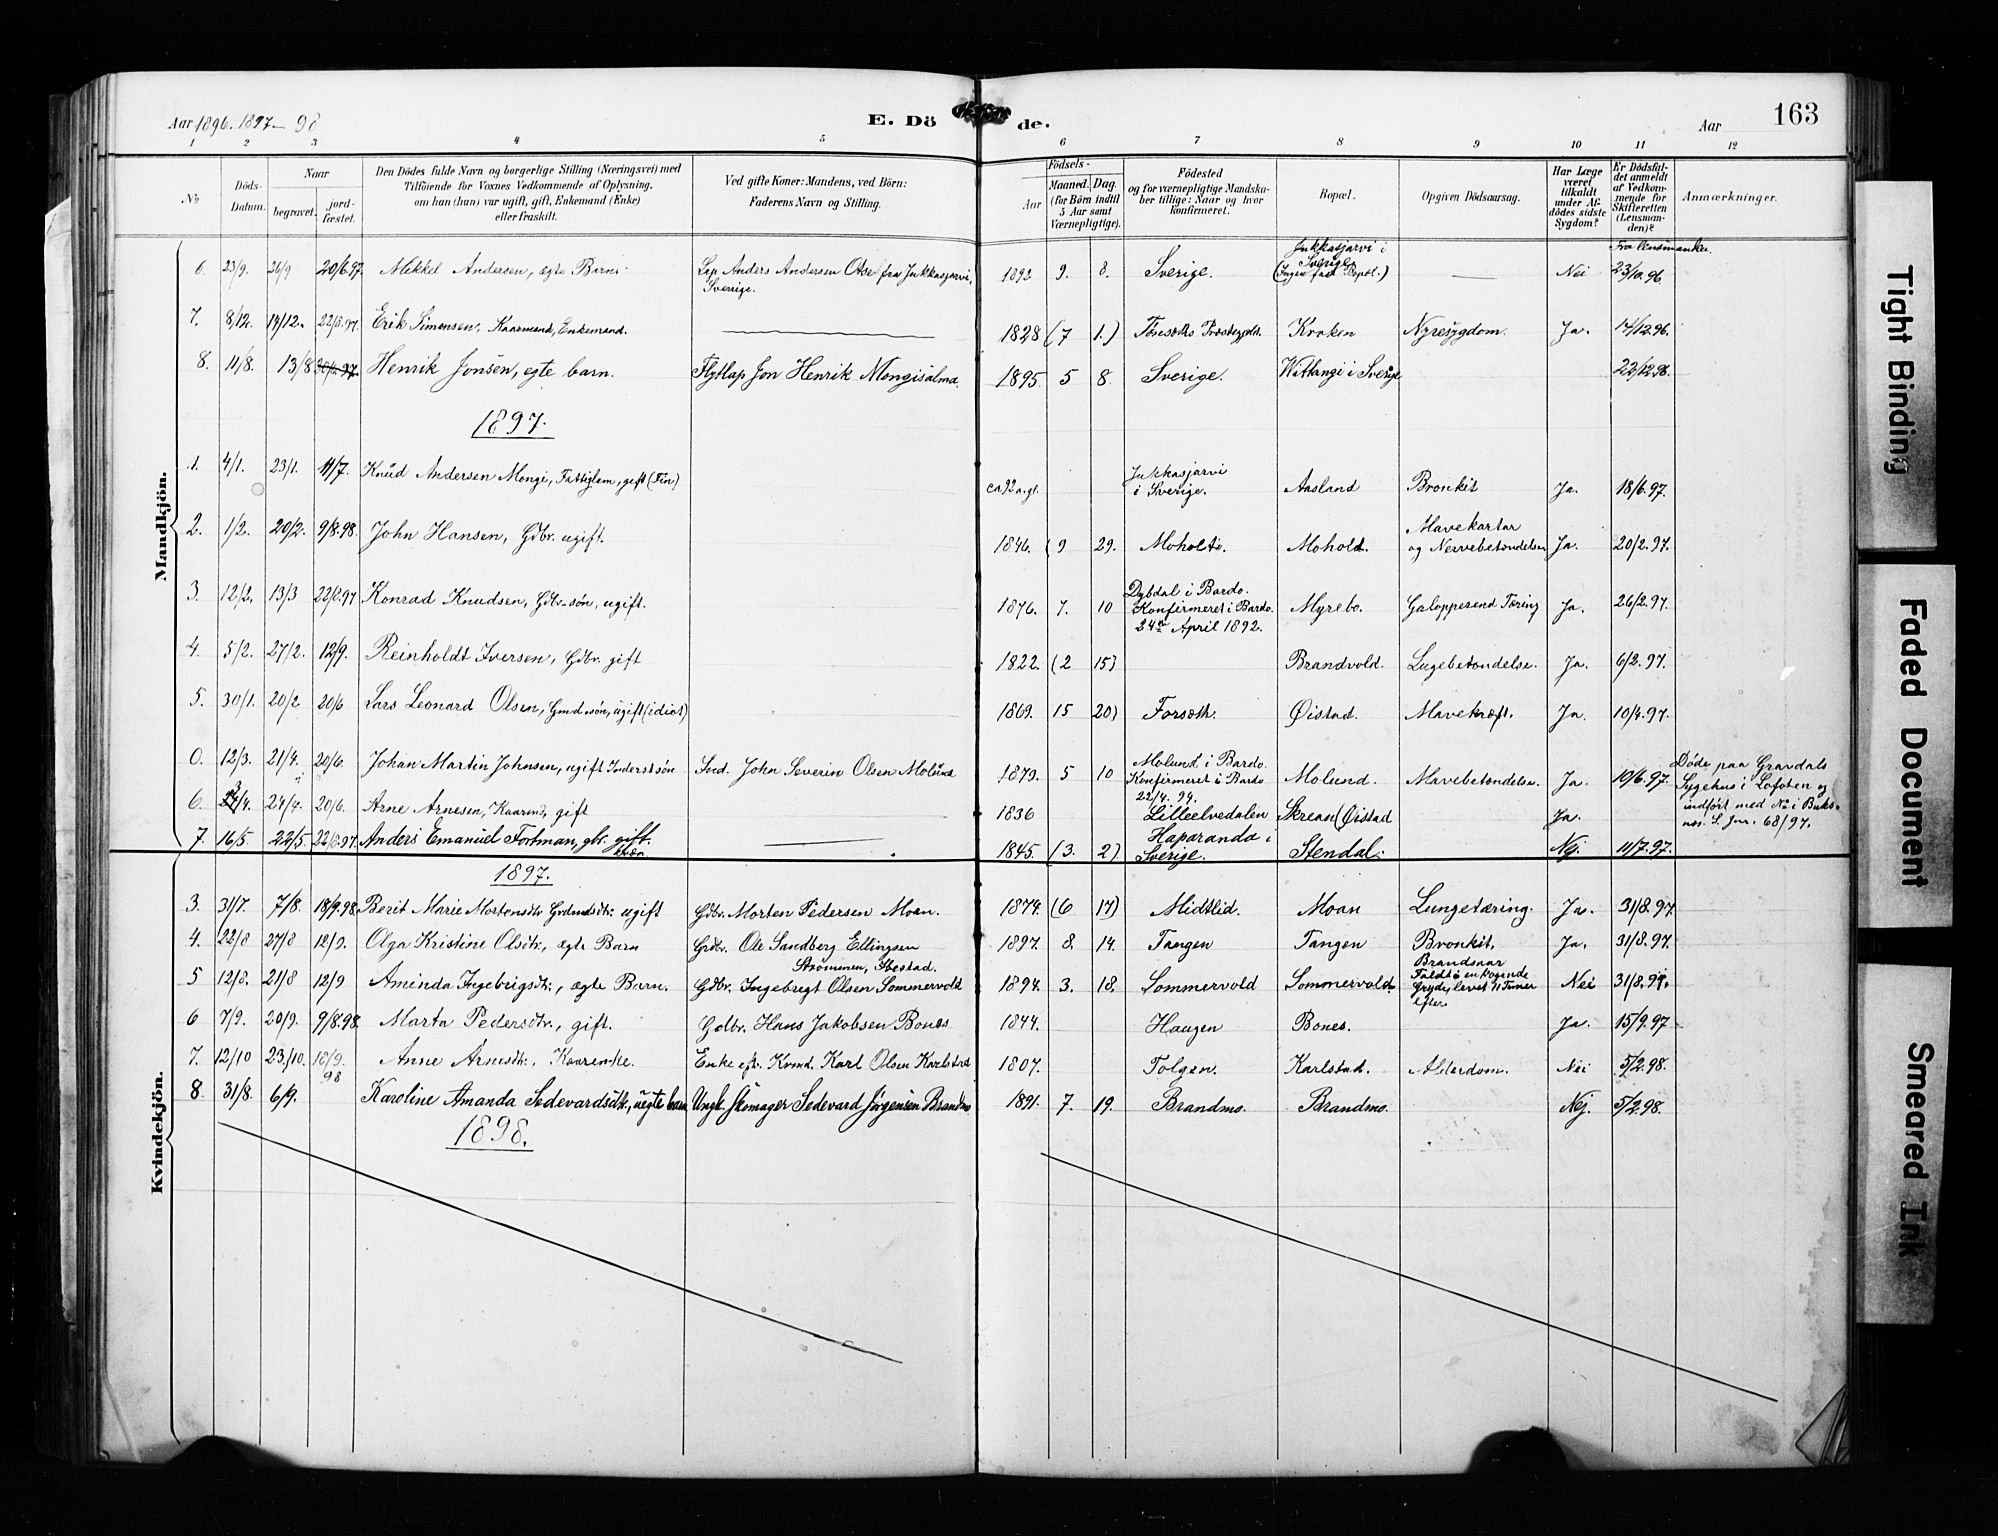 Aar 1896. 1897– 98
E. Döde.
Aar
163
1 2 3 4 5 6 7 8 9 10 11 12
No
Döds-Datum.
Naar
begravet.
jord-fæstet.
Den Dödes fulde Navn og borgerlige Stilling (Næringsvei) med
Tilföiende for Voxnes Vedkommende af Oplysning,
om han (hun) var ugift, gift, Enkemand (Enke)
eller fraskilt.
Ved gifte Koner: Mandens, ved Börn:
Faderens Navn og Stilling.
Födsels-
Aar
Maaned. Dag.
(for Börn indtil
5 Aar samt
Værnepligtige).
Födested
og for værnepligtige Mandska-
ber tillige: Naar og hvor
konfirmeret.
Bopæl.
Opgiven Dödsaarsag.
Har Læge
været
tilkaldt
under Af-
dödes sidste
Sygdom?
Er Dödsfal-
det anmeldt
af Vedkom-
mende for
Skifteretten
(Lensman-
den)?
Anmærkninger.
Mandkjön.
6. 23/9. 26/9 20/6.97. Mikkel Andersen, egte Barn. Lap Anders Andersen Otse fra Jukkasjarvi, Sverige. 1892 9. 8. Sverige. Jukkasjarvi i Sverige (Ingen fast Bopæl.) — Nei 23/10.96.
7. 8/12. 14/12. 22/8.97. Erik Simonsen, Kaarmand, Enkemand. 1828 (7 1.) Kroken Nyresygdom. Ja. 14/12.96.
8. 11/8. 13/8 Henrik Jonsen, egte barn. Flytlap Jon Henrik Mongisalma. 1895. 5 8. Sverige. Wittangi i Sverige 22/12.96.
1897.
1. 4/1. 23/1. 11/7. Knud Andersen Mongi, Fattiglem, gift (Fin) ca 92 a. gl. Jukkasjarvi i Sverige. Aasland Bronkit Ja. 18/6.97.
2. 1/2. 20/2. 9/8.98. John Hansen, Gdbr. ugift. 1846. (9 29. Moholt. Mohold. Mavekartar og Nervebetændelse Ja. 20/2.97.
3. 12/2. 13/3 22/8.97 Konrad Knudsen, Gdbr-søn, ugift. 1876. 7. 10 Dybdal i Bardo. Konfirmeret i Bardo. 24de April 1892. Myrebo. Galopperend Tæring Ja. 26/2.97.
4. 5/2. 27/2. 12/9. Reinholdt Iversen, Gdbr. gift 1822. (2 15) Brandvold. Lugebetændelse. Ja. 6/2.97.
5. 30/1. 20/2 20/6 Lars Leonard Olsen, Gmd.søn, ugift (idiot) 1869. 15 20) Forseth. Øistad. Mavekræft. Ja. 10/4.97.
0. 12/3. 21/4. 20/6. Johan Martin Johnsen, ugift Inderstsøn Ind. John Severin Olsen Molund 1879. 5 10 Molund i Bardo. Konfirmeret i Bardo 22/4. 94. Molund. Mavebetændelse. Ja. 10/6.97. Døde paa Gravdals Sygehus i Lofoten og indført med No i Buksnes. S. Jnr. 68/97.
6. 24/4. 20/6. Arne Arnesen, Kaarmd, gift 1836 Lilleelvedalen Skrean (Øistad Ja.
7. 16/5. 22/5. 22/8.97. Anders Emanuel Fortman, gbr. gift. kvæn — 1845. (3. 2) Haparanda i Sverige. Stendal. Nej. 11/7.97.
Kvindekjön.
1897.
3. 31/7. 7/8. 18/9.98. Berit Marie Mortensdtr. Grdmdsdtr. ugift Gdbr. Morten Pedersen Moan. 1874. (6 17) Midtlid. Moan Lungetæring. Ja. 31/8.97.
4. 22/8 27/8 12/9. Olga Kristine Olsdtr., ægte Barn Grdbr. Ole Sandberg Ellingsen Strømmen, Ibestad. 1897. 8. 14. Tangen Tangen Bronkit, Ja. 31/8.97.
5 12/8. 21/8 12/9 Aminda Ingebrigsdtr., ægte Barn. Gdbr. Ingebrigt Olsen Sommervold 1894. 3. 18. Sommervold Sommervold. Brandsaar Faldt i en kogende Gryde, levet 11 Timer efter Nei 31/8.97.
6 7/9. 20/9. 9/8.98. Marta Pedersdtr., gift. Gdbr. Hans Jakobsen Bones 1844. Haugen Bones. Ja. 15/9.97
7. 12/10 23/10. 18/9. 98 Anne Arnesdtr., Kaarenke. Enke eft. Kvmd. Karl Olsen Karlstad 1807. Tolgen. Karlstad. Alderdom. Nei 5/2.98.
8 31/8. 6/9. Karoline Amanda Sedevardsdtr., uegte barn Ungk. Skomager Sedevard Jørgensen Brandmo 1891. 7. 19. Brandmo. Brandmo. Nej. 5/2.98.
1898.
Tight Binding
Faded Document
Smeared Ink